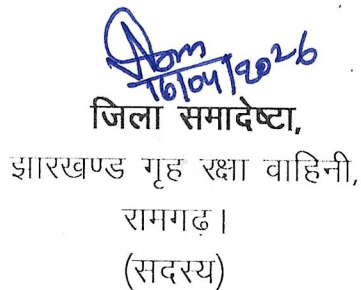 16/04/2026
जिला समादेष्टा,
झारखण्ड गृह रक्षा वाहिनी,
रामगढ़।
(सदस्य)